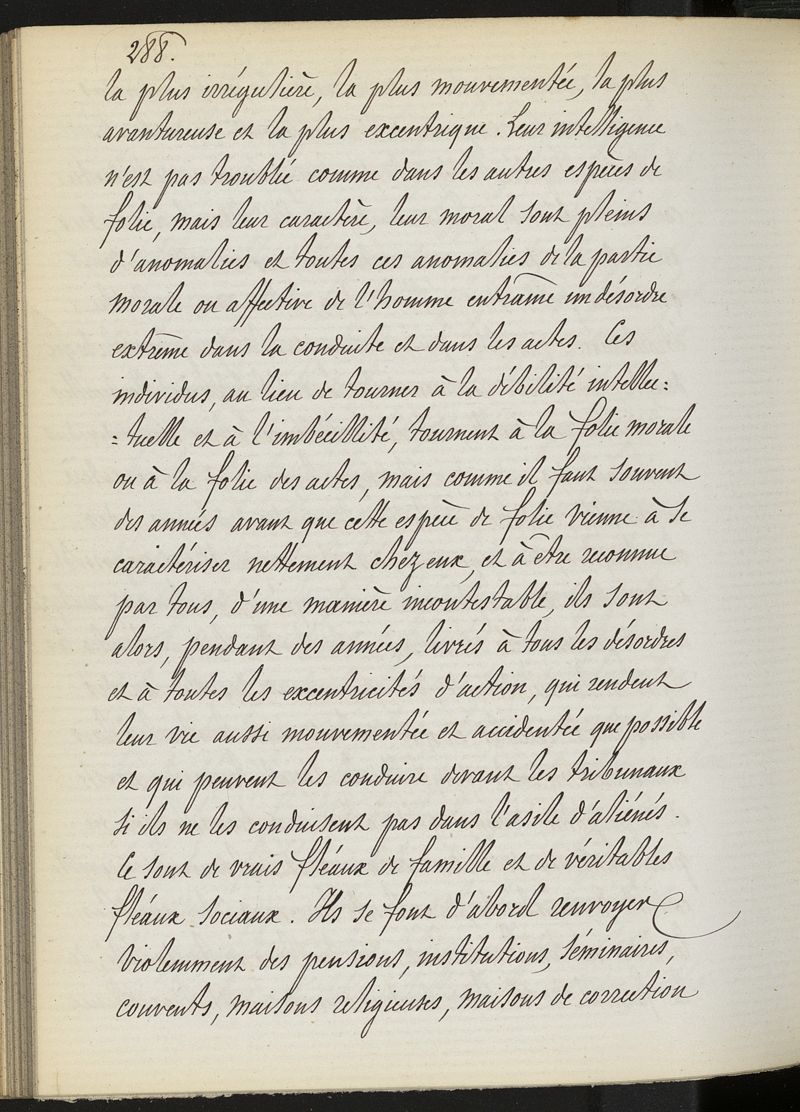 288.
la plus irrégulière, la plus mouvementée, la plus
avantureuse et la plus excentrique. Leur intelligence
n'est pas troublée comme dans les autres espèces de
folie, mais leur caractère, leur moral sont pleins
d'anomalies et toutes ces anomalies de la partie
morale ou affective de l'homme entraîne un désordre
extrême dans la conduite et dans les actes. Ces
individus, au lieu de tourner à la débilité intellec=
=tuelle et à l'imbécillité, tournent à la folie morale
ou à la folie des actes, mais comme il faut souvent
des années avant que cette espèce de folie vienne à se
caractériser nettement chez eux, et à être reconnue
par tous, d'une manière incontestable, ils sont
alors, pendant des années, livrés à tous les désordres
et à toutes les excentricités d'action, qui rendent
leur vie aussi mouvementée et accidentée que possible
et qui peuvent les conduire devant les tribunaux
si ils ne les conduisent pas dans l'asile d'aliénés.
Ce sont de vrais fléaux de famille et de véritables
fléaux sociaux. Ils se font d'abord renvoyer
violemment des pensions, institutions, séminaires,
couvents, maisons religieuses, maisons de correction